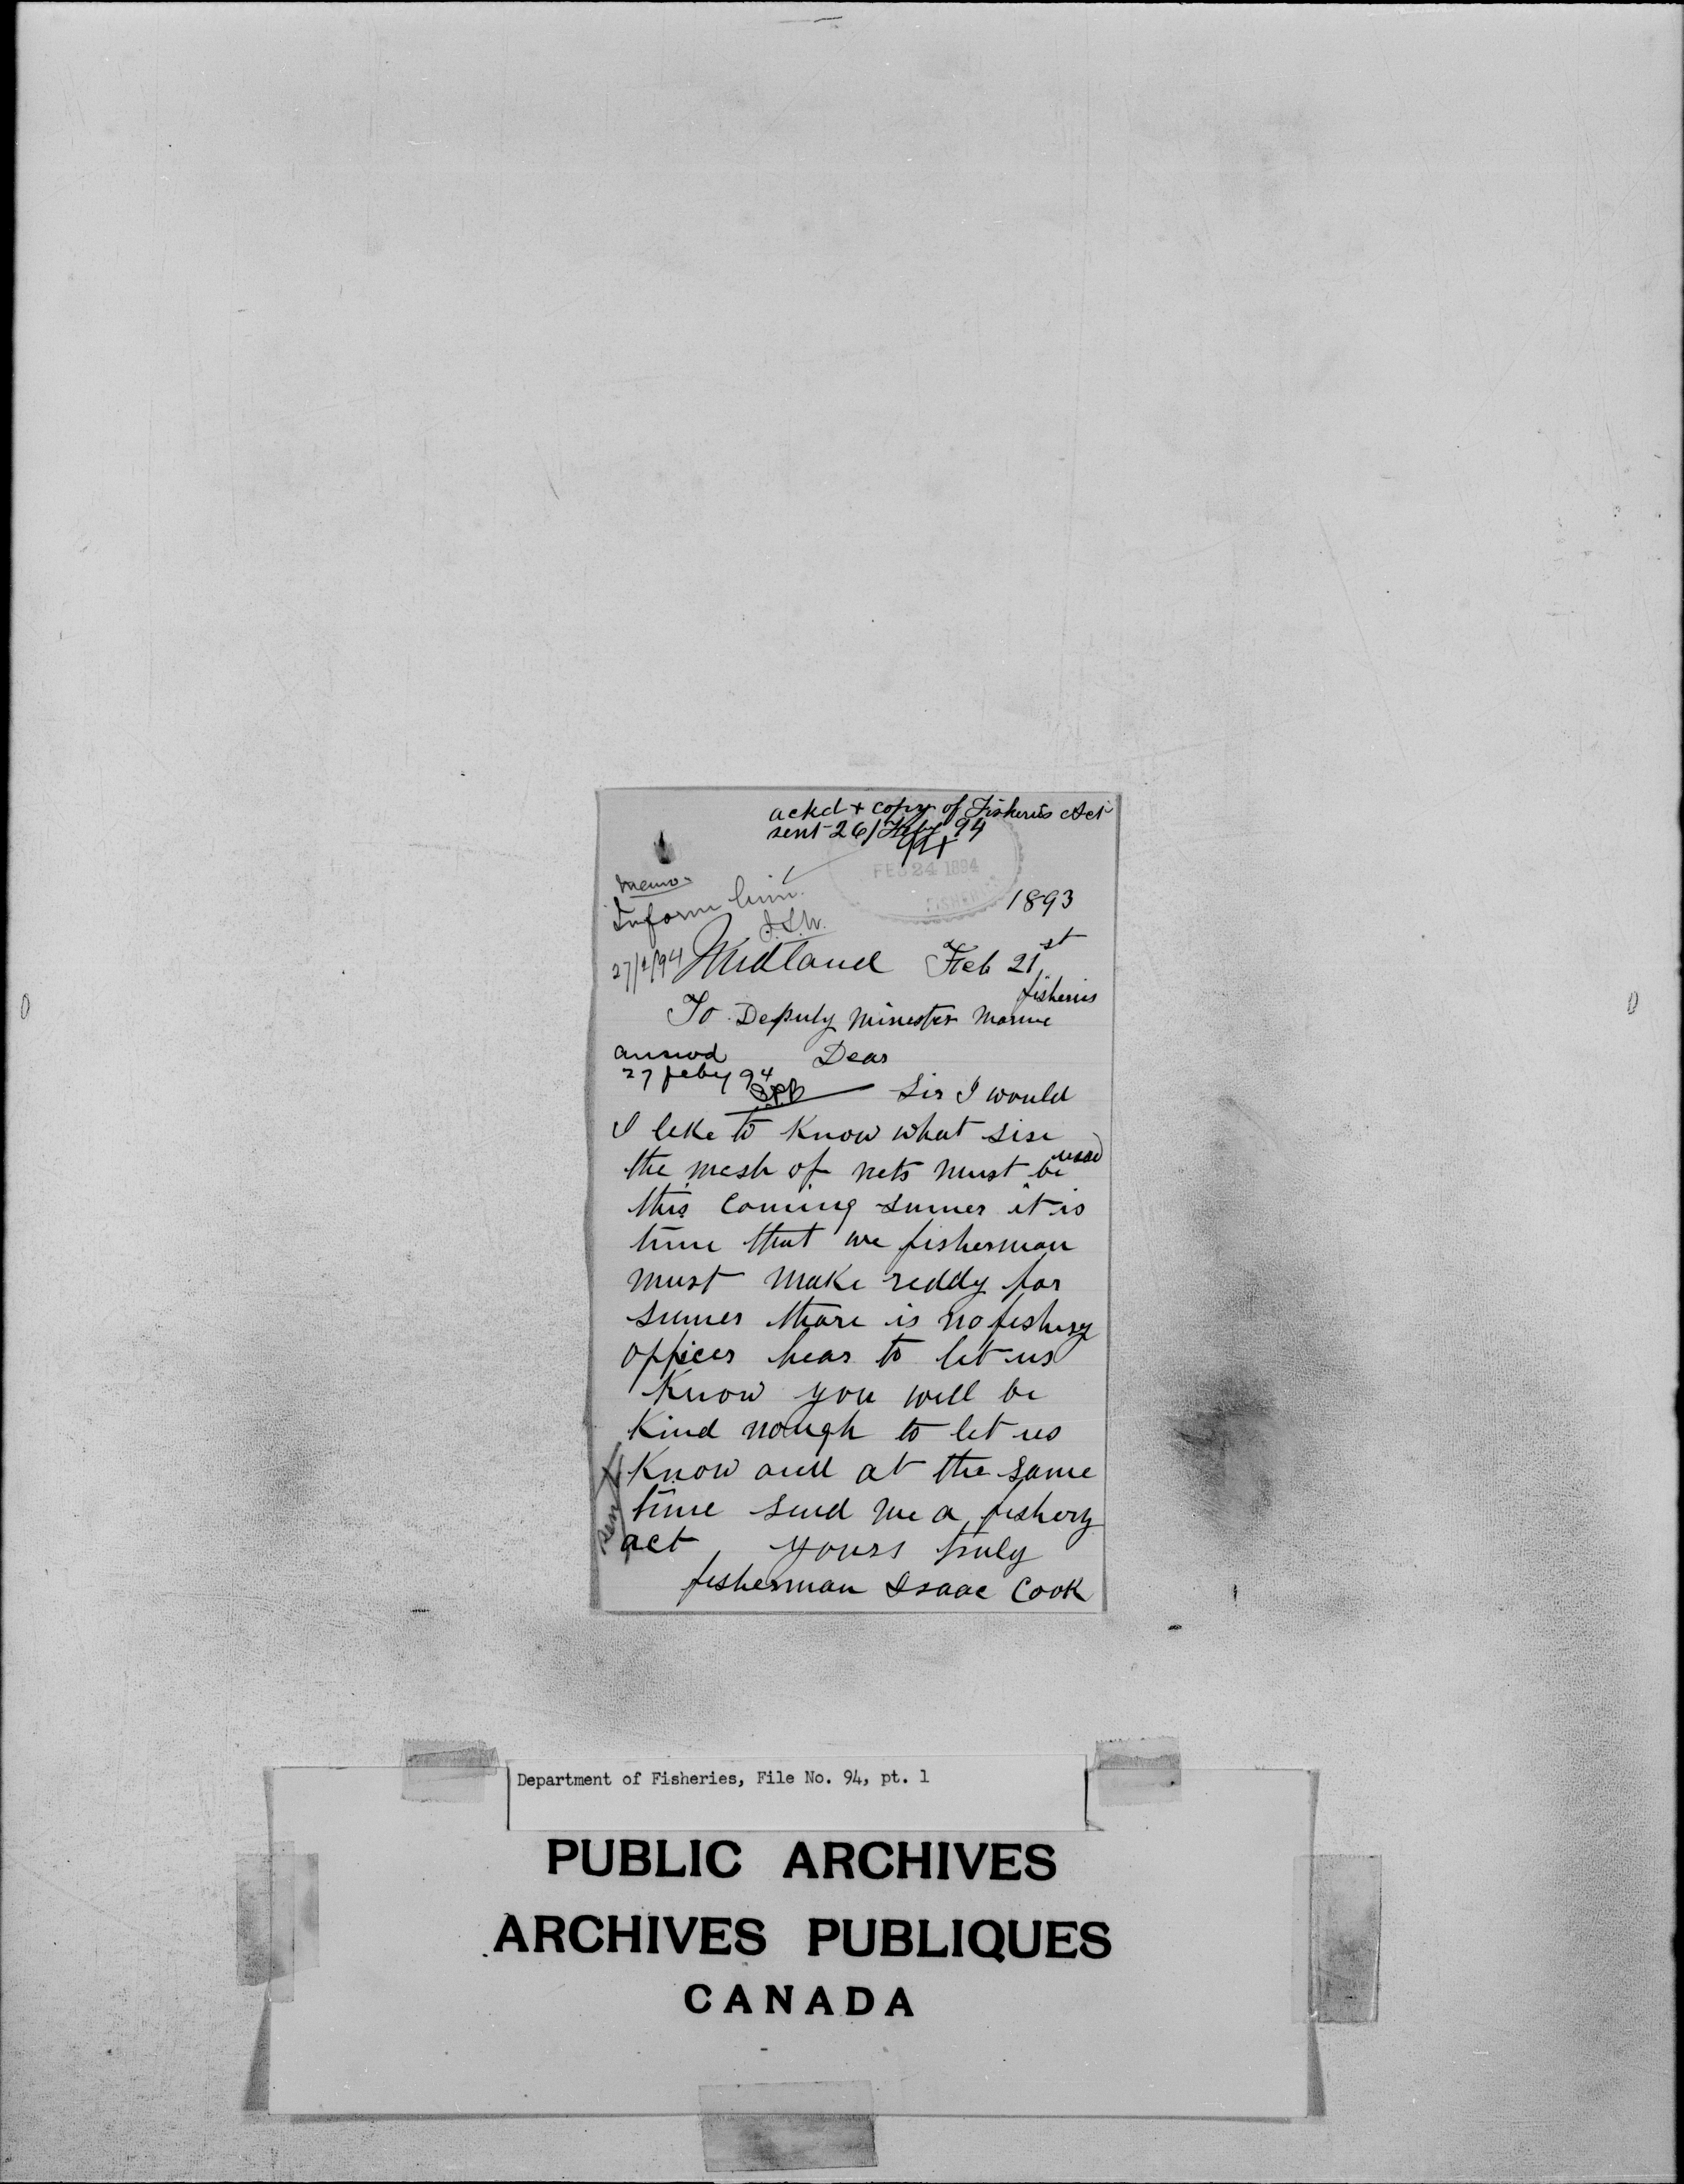 ackd + copy of Fisheries Act
sent 26/Feby 94
FEB 24 1894
FISHERIES
memo.
Inform him.
1893
27/2/94 Midland Feb 21st
fisheries
To Deputy minester Marine
answd Dear
27 feby 94
Sir I would
I leke to Know what sise
used
the mesh of nets must be
this Coming sumer it is
time that we fisherman
must make reddy for
sumer thare is no fishery
officer hear to let us
Know you will be
Kind nough to let us
Know and at the same
time send me a fishery
sent
act yours truly
fisherman Isaac Cook
Department of Fisheries, File No. 94, pt. 1
PUBLIC ARCHIVES
ARCHIVES PUBLIQUES
CANADA